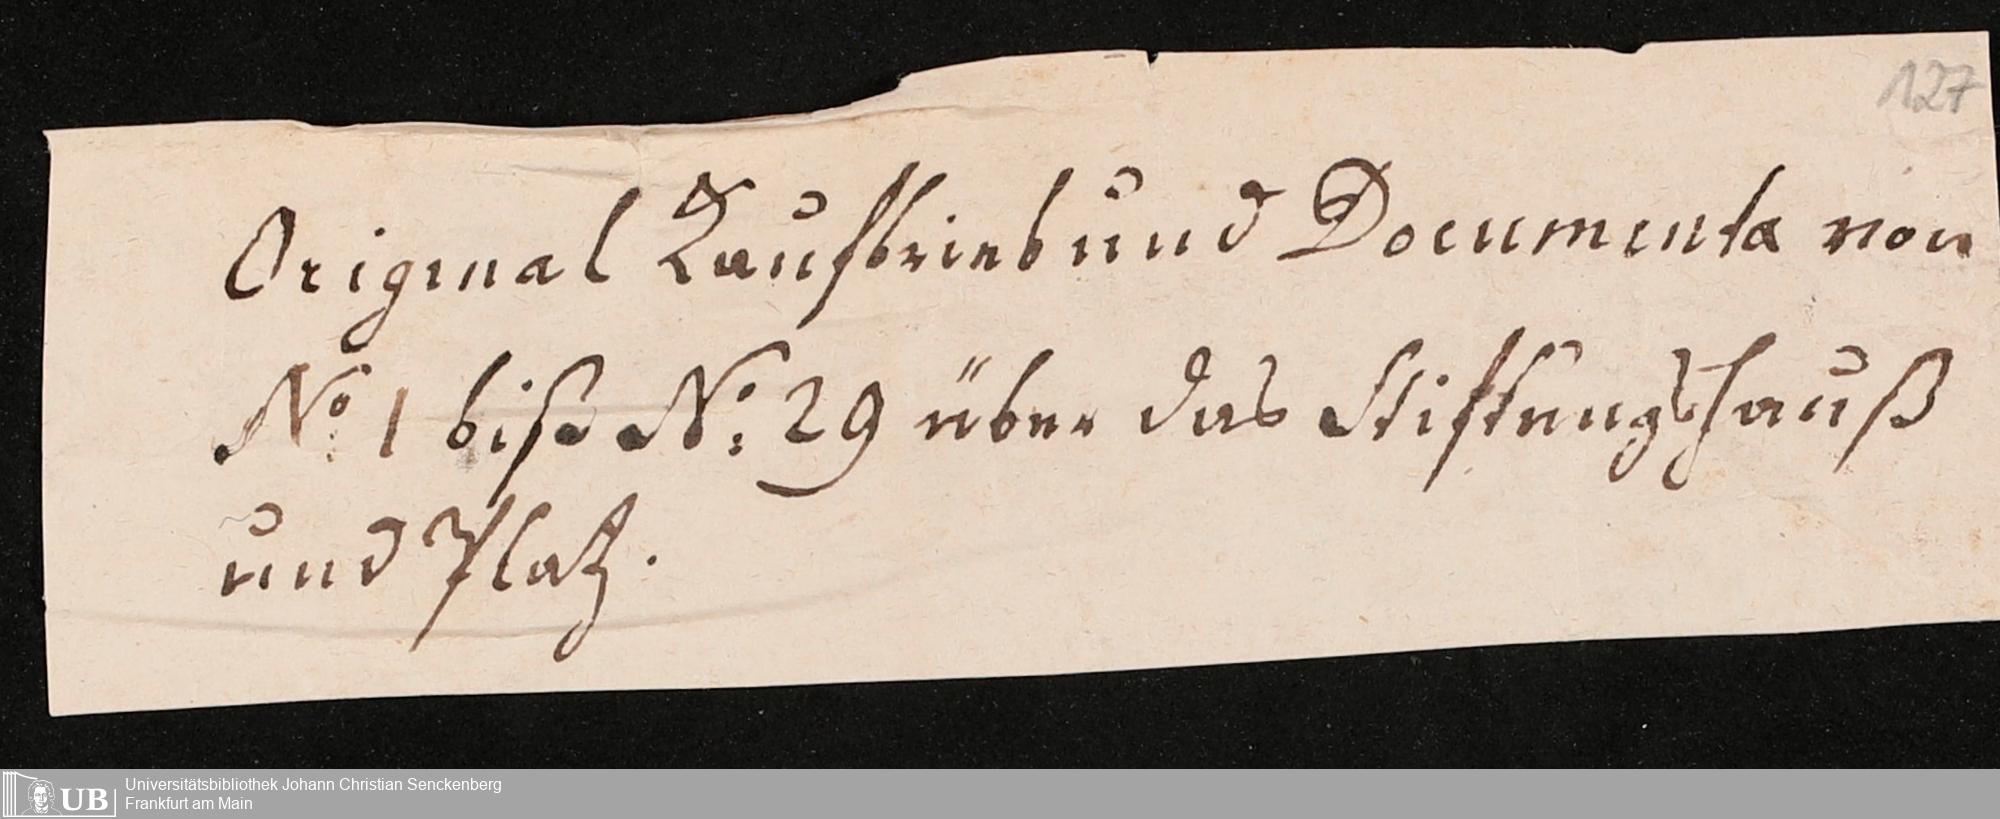 127
Original Kaufbrieb und Documenta von
No. 1 biß No. 29 über das Stiftungshauß
und Platz.
UB
Universitätsbibliothek Johann Christian Senckenberg
Frankfurt am Main